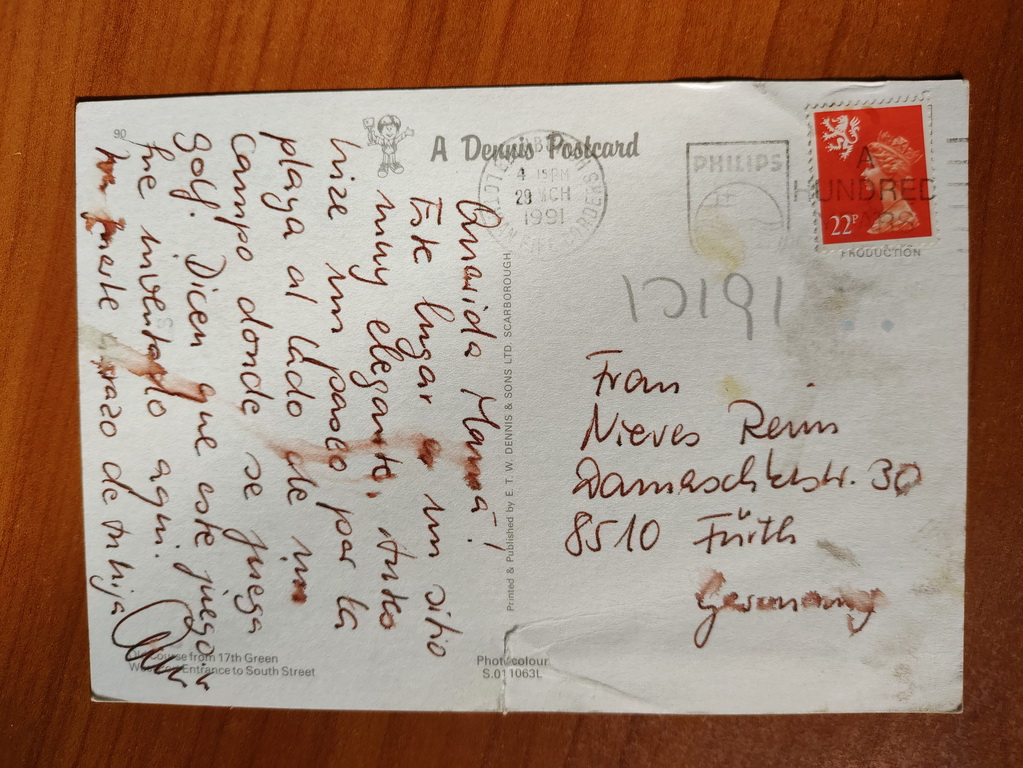 90
A Dennis Postcard
Querida Mamá!
Este lugar es un sitio
muy elegante,
hize un paseo por la
playa al lado de un
campo donde se juega
golf. Dicen que este juego
fue inventado aqui.
fuerte abrazo de tu hija
Course from 17th Green
Entrance to South Street
Printed & Published by E. T. W. DENNIS & SONS LTD. SCARBOROUGH
Photocolour
S.011063L
29 MCH
1991
PHILIPS
A
HUNDRED
PRODUCTION
22P
Frau
Nieves Reim
Damaschkestr. 30
8510 Fürth
Germany